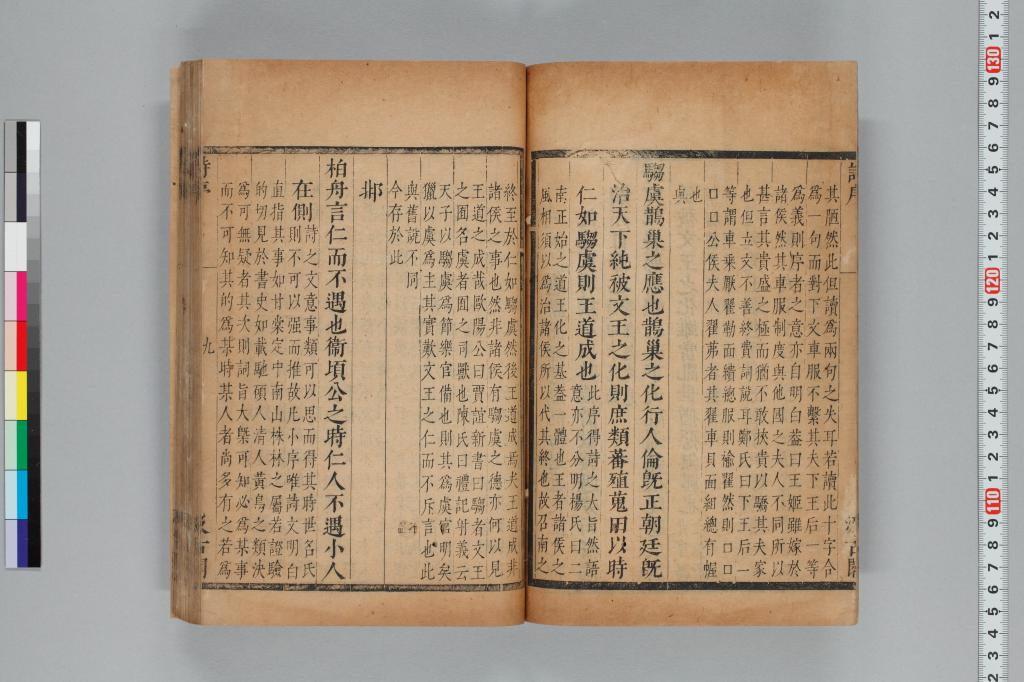 詩序
其陋然此但讀爲兩句之失耳若讀此十字合
爲一句而對下文車服不繫其夫下王后一等
爲義則序者之意亦自明白葢曰王姬雖嫁於
諸侯然其車服制度與他國之夫人不同所以
甚言其貴盛之極而猶不敢挾貴以驕其夫家
也但立文不善終費詞說耳鄭氏曰下王后一
等謂車乘厭翟勒面繢總服則褕翟然則口口
口口公侯夫人翟茀者其翟車貝面組總有幄
也
與
騶虞鵲巢之應也鵲巢之化行人倫旣正朝廷旣
治天下純被文王之化則庶類蕃殖蒐田以時
仁如騶虞則王道成也此序得詩之大旨然語
意亦不分明楊氏曰二
南正始之道王化之基葢一體也王者諸侯之
風相須以爲治諸侯所以代其終也故召南之
終至於仁如騶虞然後王道成焉夫王道成非
諸侯之事也然非諸侯有騶虞之德亦何以見
王道之成哉歐陽公曰賈誼新書曰騶者文王
之囿名虞者囿之司獸也陳氏曰禮記射義云
天子以騶虞爲節樂官備也則其爲虞官明矣
獵以虞爲主其實歎文王之仁而不斥言也此
與舊說不同
今存於此
邶
柏舟言仁而不遇也衞頃公之時仁人不遇小人
在側詩之文意事類可以思而得其時世名氏
則不可以强而推故凡小序唯詩文明白
直指其事如甘棠定中南山株林之屬若證驗
的切見於書史如載馳碩人清人黃鳥之類決
爲可無疑者其次則詞旨大槩可知必爲某事
而不可知其的爲某時某人者尚多有之若爲
詩序
九
汲古閣